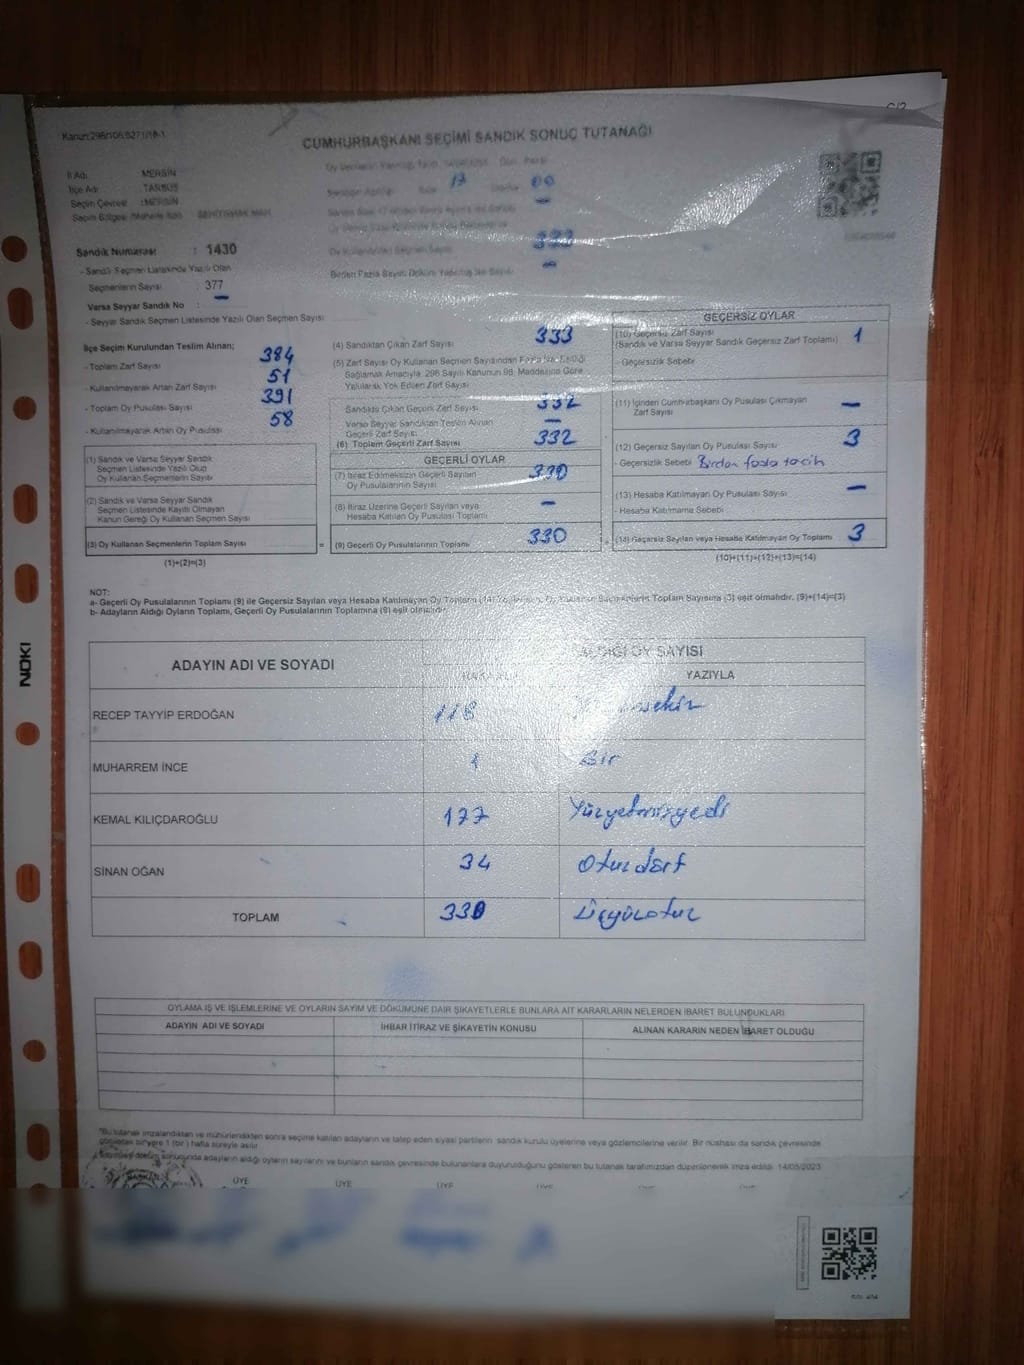 Kanun:298/106;6271/18-1
CUMHURBAŞKANI SEÇİMİ SANDIK SONUÇ TUTANAĞI
İl Adı : MERSİN
İlçe Adı : TARSUS
Seçim Çevresi : MERSİN
17 00
Sandık Numarası : 1430
- Sandık Seçmen Listesinde Yazılı Olan
Seçmenlerin Sayısı : 377
Varsa Seyyar Sandık No : –
- Seyyar Sandık Seçmen Listesinde Yazılı Olan Seçmen Sayısı
333
–
İlçe Seçim Kurulundan Teslim Alınan;
- Toplam Zarf Sayısı 384
- Kullanılmayarak Artan Zarf Sayısı 51
- Toplam Oy Pusulası Sayısı 391
- Kullanılmayarak Artan Oy Pusulası 58
(1) Sandık ve Varsa Seyyar Sandık
Seçmen Listesinde Yazılı Olup
Oy Kullanan Seçmenlerin Sayısı
(2) Sandık ve Varsa Seyyar Sandık
Seçmen Listesinde Kayıtlı Olmayan
Kanun Gereği Oy Kullanan Seçmen Sayısı
(3) Oy Kullanan Seçmenlerin Toplam Sayısı =
(1)+(2)=(3)
(4) Sandıktan Çıkan Zarf Sayısı 333
(5) Zarf Sayısı Oy Kullanan Seçmen Sayısından Fazla ise Eşitliği
Sağlamak Amacıyla, 298 Sayılı Kanunun 98. Maddesine Göre
Yakılarak Yok Edilen Zarf Sayısı
Sandıktan Çıkan Geçerli Zarf Sayısı 332
Varsa Seyyar Sandıktan Teslim Alınan
Geçerli Zarf Sayısı –
(6) Toplam Geçerli Zarf Sayısı 332
GEÇERLİ OYLAR
(7) İtiraz Edilmeksizin Geçerli Sayılan
Oy Pusulalarının Sayısı 330
(8) İtiraz Üzerine Geçerli Sayılan veya
Hesaba Katılan Oy Pusulası Toplamı –
(9) Geçerli Oy Pusulalarının Toplamı 330
GEÇERSİZ OYLAR
(10) Geçersiz Zarf Sayısı
(Sandık ve Varsa Seyyar Sandık Geçersiz Zarf Toplamı) 1
- Geçersizlik Sebebi
(11) İçinden Cumhurbaşkanı Oy Pusulası Çıkmayan
Zarf Sayısı –
(12) Geçersiz Sayılan Oy Pusulası Sayısı 3
- Geçersizlik Sebebi Birden fazla tercih
(13) Hesaba Katılmayan Oy Pusulası Sayısı –
- Hesaba Katılmama Sebebi
(14) Geçersiz Sayılan veya Hesaba Katılmayan Oy Toplamı 3
(10)+(11)+(12)+(13)=(14)
NOT:
a- Geçerli Oy Pusulalarının Toplamı (9) ile Geçersiz Sayılan veya Hesaba Katılmayan Oy Toplamı (14) Toplam Sayısına (3) eşit olmalıdır. (9)+(14)=(3)
b- Adayların Aldığı Oyların Toplamı, Geçerli Oy Pusulalarının Toplamına (9) eşit olmalıdır.
ADAYIN ADI VE SOYADI
ALDIĞI OY SAYISI
RAKAMLA YAZIYLA
RECEP TAYYİP ERDOĞAN 118
MUHARREM İNCE 1 Bir
KEMAL KILIÇDAROĞLU 177 Yüzyetmişyedi
SİNAN OĞAN 34 Otuzdört
TOPLAM 330 Üçyüzotuz
OYLAMA İŞ VE İŞLEMLERİNE VE OYLARIN SAYIM VE DÖKÜMÜNE DAİR ŞİKAYETLERLE BUNLARA AİT KARARLARIN NELERDEN İBARET BULUNDUKLARI
ADAYIN ADI VE SOYADI İHBAR İTİRAZ VE ŞİKAYETİN KONUSU ALINAN KARARIN NEDEN İBARET OLDUĞU
*Bu tutanak imzalandıktan ve mühürlendikten sonra seçime katılan adayların ve talep eden siyasi partilerin sandık kurulu üyelerine veya gözlemcilerine verilir. Bir nüshası da sandık çevresinde
görülebilen bir yere 1 (bir) hafta süreyle asılır.
sonucunda adayların aldığı oyların sayılarını ve bunların sandık çevresinde bulunanlara duyurulduğunu gösteren bu tutanak tarafımızdan düzenlenerek imza edildi. 14/05/2023
BAŞKAN ÜYE ÜYE ÜYE ÜYE
NOKI